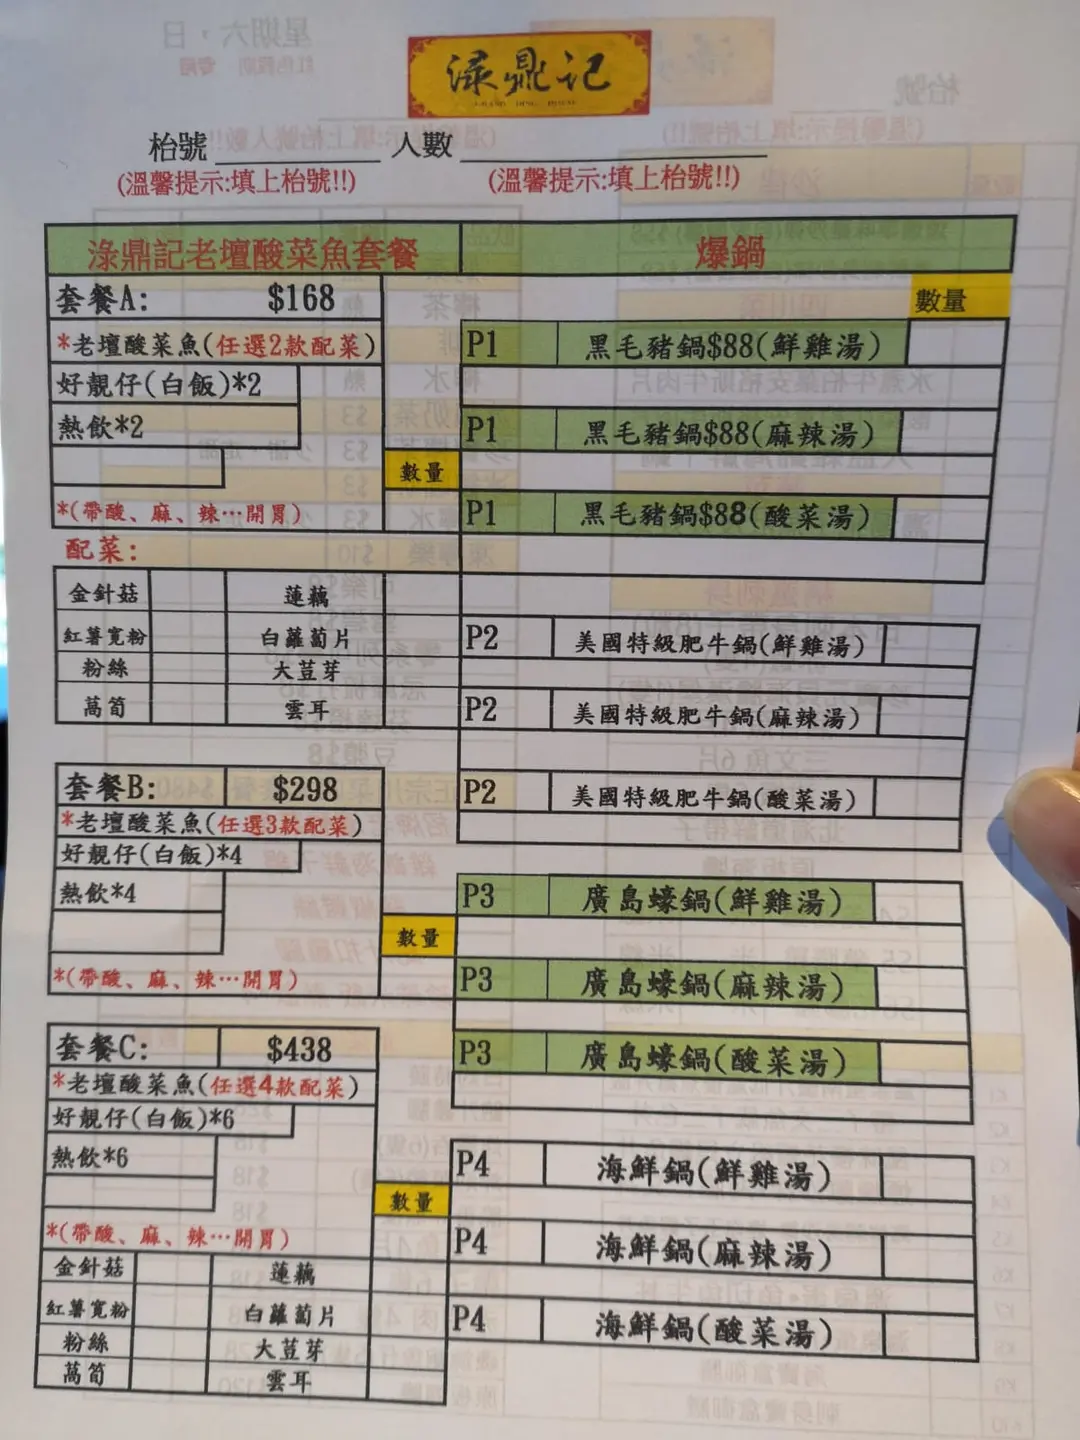 渌鼎记
GRAND DING HOUSE
枱號 人數
(溫馨提示:填上枱號!!) (溫馨提示:填上枱號!!)
淥鼎記老壇酸菜魚套餐
套餐A: $168
*老壇酸菜魚(任選2款配菜)
好靚仔(白飯)*2
熱飲*2
數量
*(帶酸、麻、辣…開胃)
配菜:
金針菇 蓮藕
紅薯寬粉 白蘿蔔片
粉絲 大荳芽
萵筍 雲耳
套餐B: $298
*老壇酸菜魚(任選3款配菜)
好靚仔(白飯)*4
熱飲*4
數量
*(帶酸、麻、辣…開胃)
套餐C: $438
*老壇酸菜魚(任選4款配菜)
好靚仔(白飯)*6
熱飲*6
數量
*(帶酸、麻、辣…開胃)
金針菇 蓮藕
紅薯寬粉 白蘿蔔片
粉絲 大荳芽
萵筍 雲耳
爆鍋
數量
P1 黑毛豬鍋$88(鮮雞湯)
P1 黑毛豬鍋$88(麻辣湯)
P1 黑毛豬鍋$88(酸菜湯)
P2 美國特級肥牛鍋(鮮雞湯)
P2 美國特級肥牛鍋(麻辣湯)
P2 美國特級肥牛鍋(酸菜湯)
P3 廣島蠔鍋(鮮雞湯)
P3 廣島蠔鍋(麻辣湯)
P3 廣島蠔鍋(酸菜湯)
P4 海鮮鍋(鮮雞湯)
P4 海鮮鍋(麻辣湯)
P4 海鮮鍋(酸菜湯)